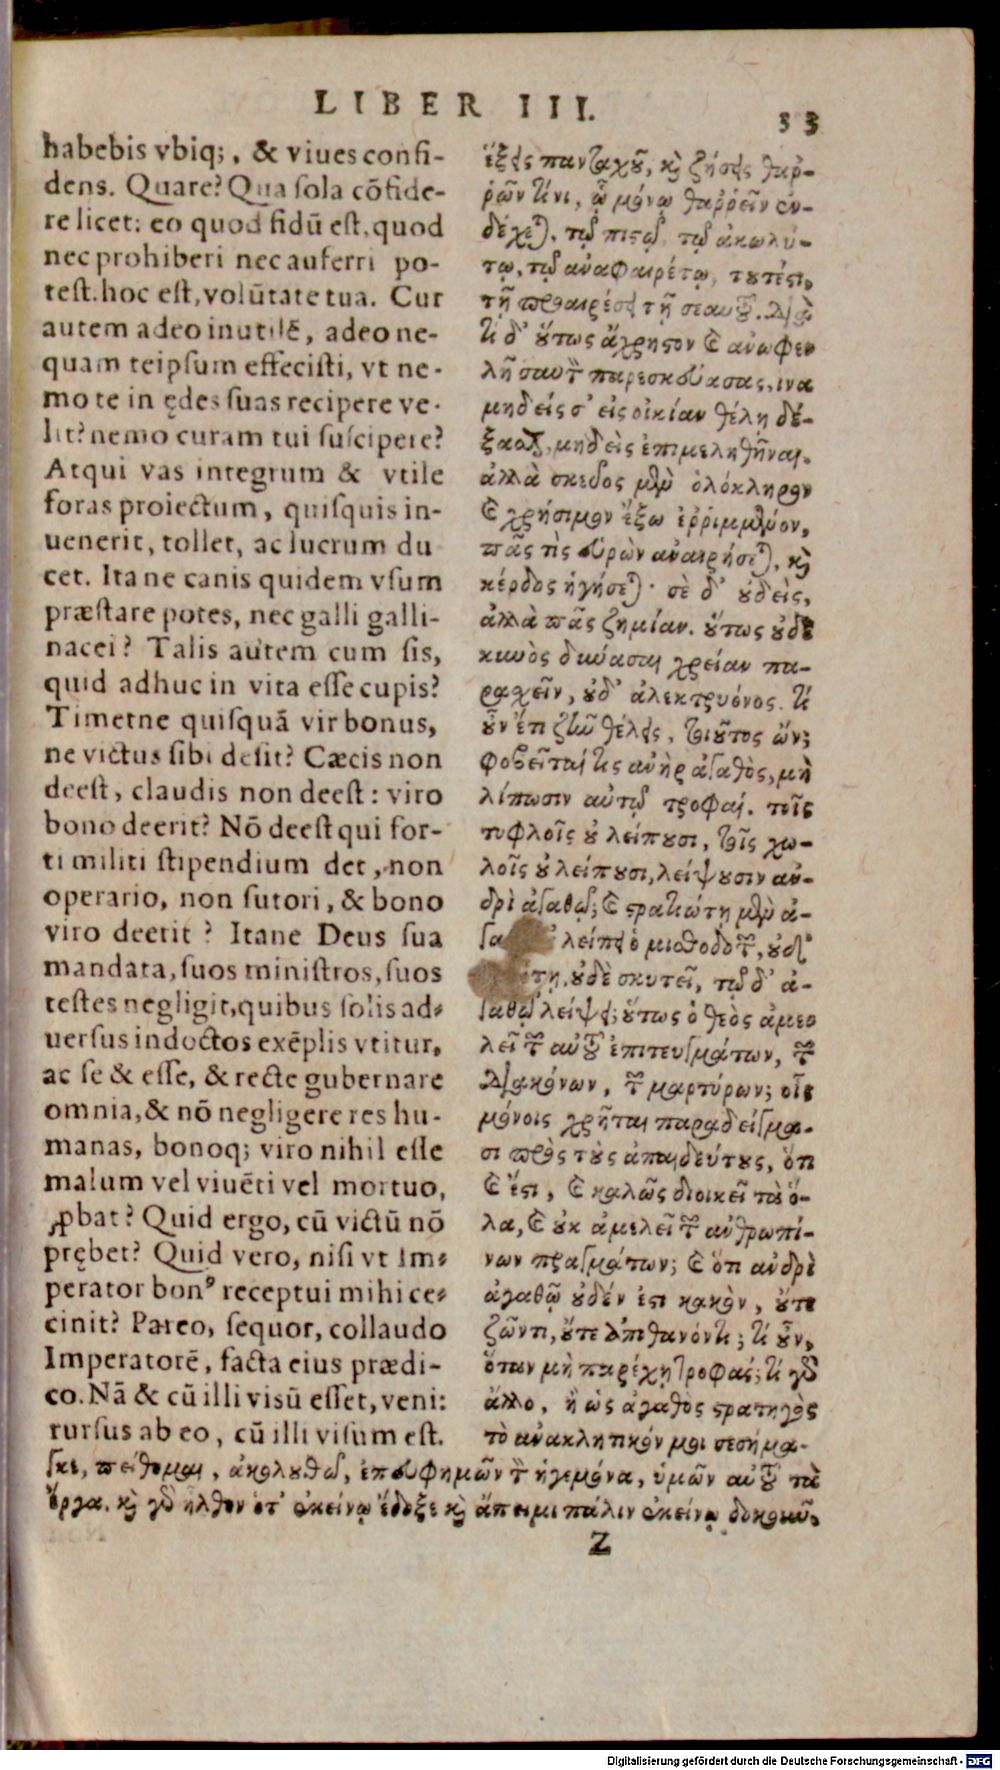 LIBER III.
33
habebis vbiq;, & viues confi-
dens. Quare? Qua sola cōfide-
re licet: eo quod fidū est, quod
nec prohiberi nec auferri po-
test. hoc est, volūtate tua. Cur
autem adeo inutilē, adeo ne-
quam teipsum effecisti, vt ne-
mo te in ędes suas recipere ve-
lit? nemo curam tui suscipere?
Atqui vas integrum & vtile
foras proiectum, quisquis in-
uenerit, tollet, ac lucrum du
cet. Ita ne canis quidem vsum
præstare potes, nec galli galli-
nacei? Talis autem cum sis,
quid adhuc in vita esse cupis?
Timetne quisquā vir bonus,
ne victus sibi desit? Cæcis non
deest, claudis non deest: viro
bono deerit? Nō deest qui for-
ti militi stipendium det, non
operario, non sutori, & bono
viro deerit? Itane Deus sua
mandata, suos ministros, suos
testes negligit, quibus solis ad-
uersus indoctos exēplis vtitur,
ac se & esse, & recte gubernare
omnia, & nō negligere res hu-
manas, bonoq; viro nihil esse
malum vel viuēti vel mortuo,
ꝓbat? Quid ergo, cū victū nō
prębet? Quid vero, nisi vt Im-
perator bonꝰ receptui mihi ce-
cinit? Pareo, sequor, collaudo
Imperatorē, facta eius prædi-
co. Nā & cū illi visū esset, veni:
rursus ab eo, cū illi visum est.
ἕξεις πανταχοῦ, καὶ ζήσεις θαρ-
ρῶν τίνι, ᾧ μόνῳ θαῤῥεῖν ἐν-
δέχεται. τῷ πιστῷ, τῷ ἀκωλύ-
τῳ, τῷ ἀναφαιρέτῳ, τουτέστι,
τῇ προαιρέσει τῇ σεαυτοῦ. διὰ
τί δ' οὕτως ἄχρηστον καὶ ἀνωφε
λῆ σαυτὸν παρεσκεύασας, ἵνα
μηδείς σ' εἰς οἰκίαν θέλῃ δέ-
ξασθαι, μηδεὶς ἐπιμεληθῆναι.
ἀλλὰ σκεῦος μὲν ὁλόκληρον
καὶ χρήσιμον ἔξω ἐῤῥιμμένον,
πᾶς τὶς εὑρὼν ἀναιρήσεται, καὶ
κέρδος ἡγήσεται· σὲ δ' οὐδεὶς,
ἀλλὰ πᾶς ζημίαν. οὕτως οὐδὲ
κυνὸς δύνασαι χρείαν πα-
ρασχεῖν, οὐδ' ἀλεκτρυόνος. τί
οὖν ἔτι ζῆν θέλεις, τοιοῦτος ὤν;
φοβεῖταί τις ἀνὴρ ἀγαθὸς, μὴ
λίπωσιν αὐτῷ τροφαί. τοῖς
τυφλοῖς οὐ λείπουσι, τοῖς χω-
λοῖς οὐ λείπουσι, λείψουσιν ἀν-
δρὶ ἀγαθῷ; καὶ στρατιώτῃ μὲν ἀ-
λείπει ὁ μισθοδοτῶν, οὐδ'
οὐδὲ σκυτεῖ, τῷ δ' ἀ-
γαθῷ λείψει; οὕτως ὁ θεὸς ἀμε
λεῖ τῶν αὑτοῦ ἐπιτευγμάτων, τῶν
διακόνων, τῶν μαρτύρων; οἷς
μόνοις χρῆται παραδείγμα-
σι πρὸς τοὺς ἀπαιδεύτους, ὅτι
καὶ ἔστι, καὶ καλῶς διοικεῖ τὰ ὅ-
λα, καὶ οὐκ ἀμελεῖ τῶν ἀνθρωπί-
νων πραγμάτων; καὶ ὅτι ἀνδρὶ
ἀγαθῷ οὐδέν ἐστι κακὸν, οὔτε
ζῶντι, οὔτε ἀποθανόντι; τί οὖν,
ὅταν μὴ παρέχῃ τροφάς; τί γὰρ
ἄλλο, ἢ ὡς ἀγαθὸς στρατηγὸς
τὸ ἀνακλητικόν μοι σεσήμα-
γκε, πείθομαι, ἀκολουθῶ, ἐπευφημῶν τὸν ἡγεμόνα, ὑμνῶν αὐτοῦ τὰ
ἔργα. καὶ γὰρ ἦλθον ὅτ' ἐκείνῳ ἔδοξε καὶ ἄπειμι πάλιν ἐκείνῳ δοκοῦν,
Z
Digitalisierung gefördert durch die Deutsche Forschungsgemeinschaft - DFG